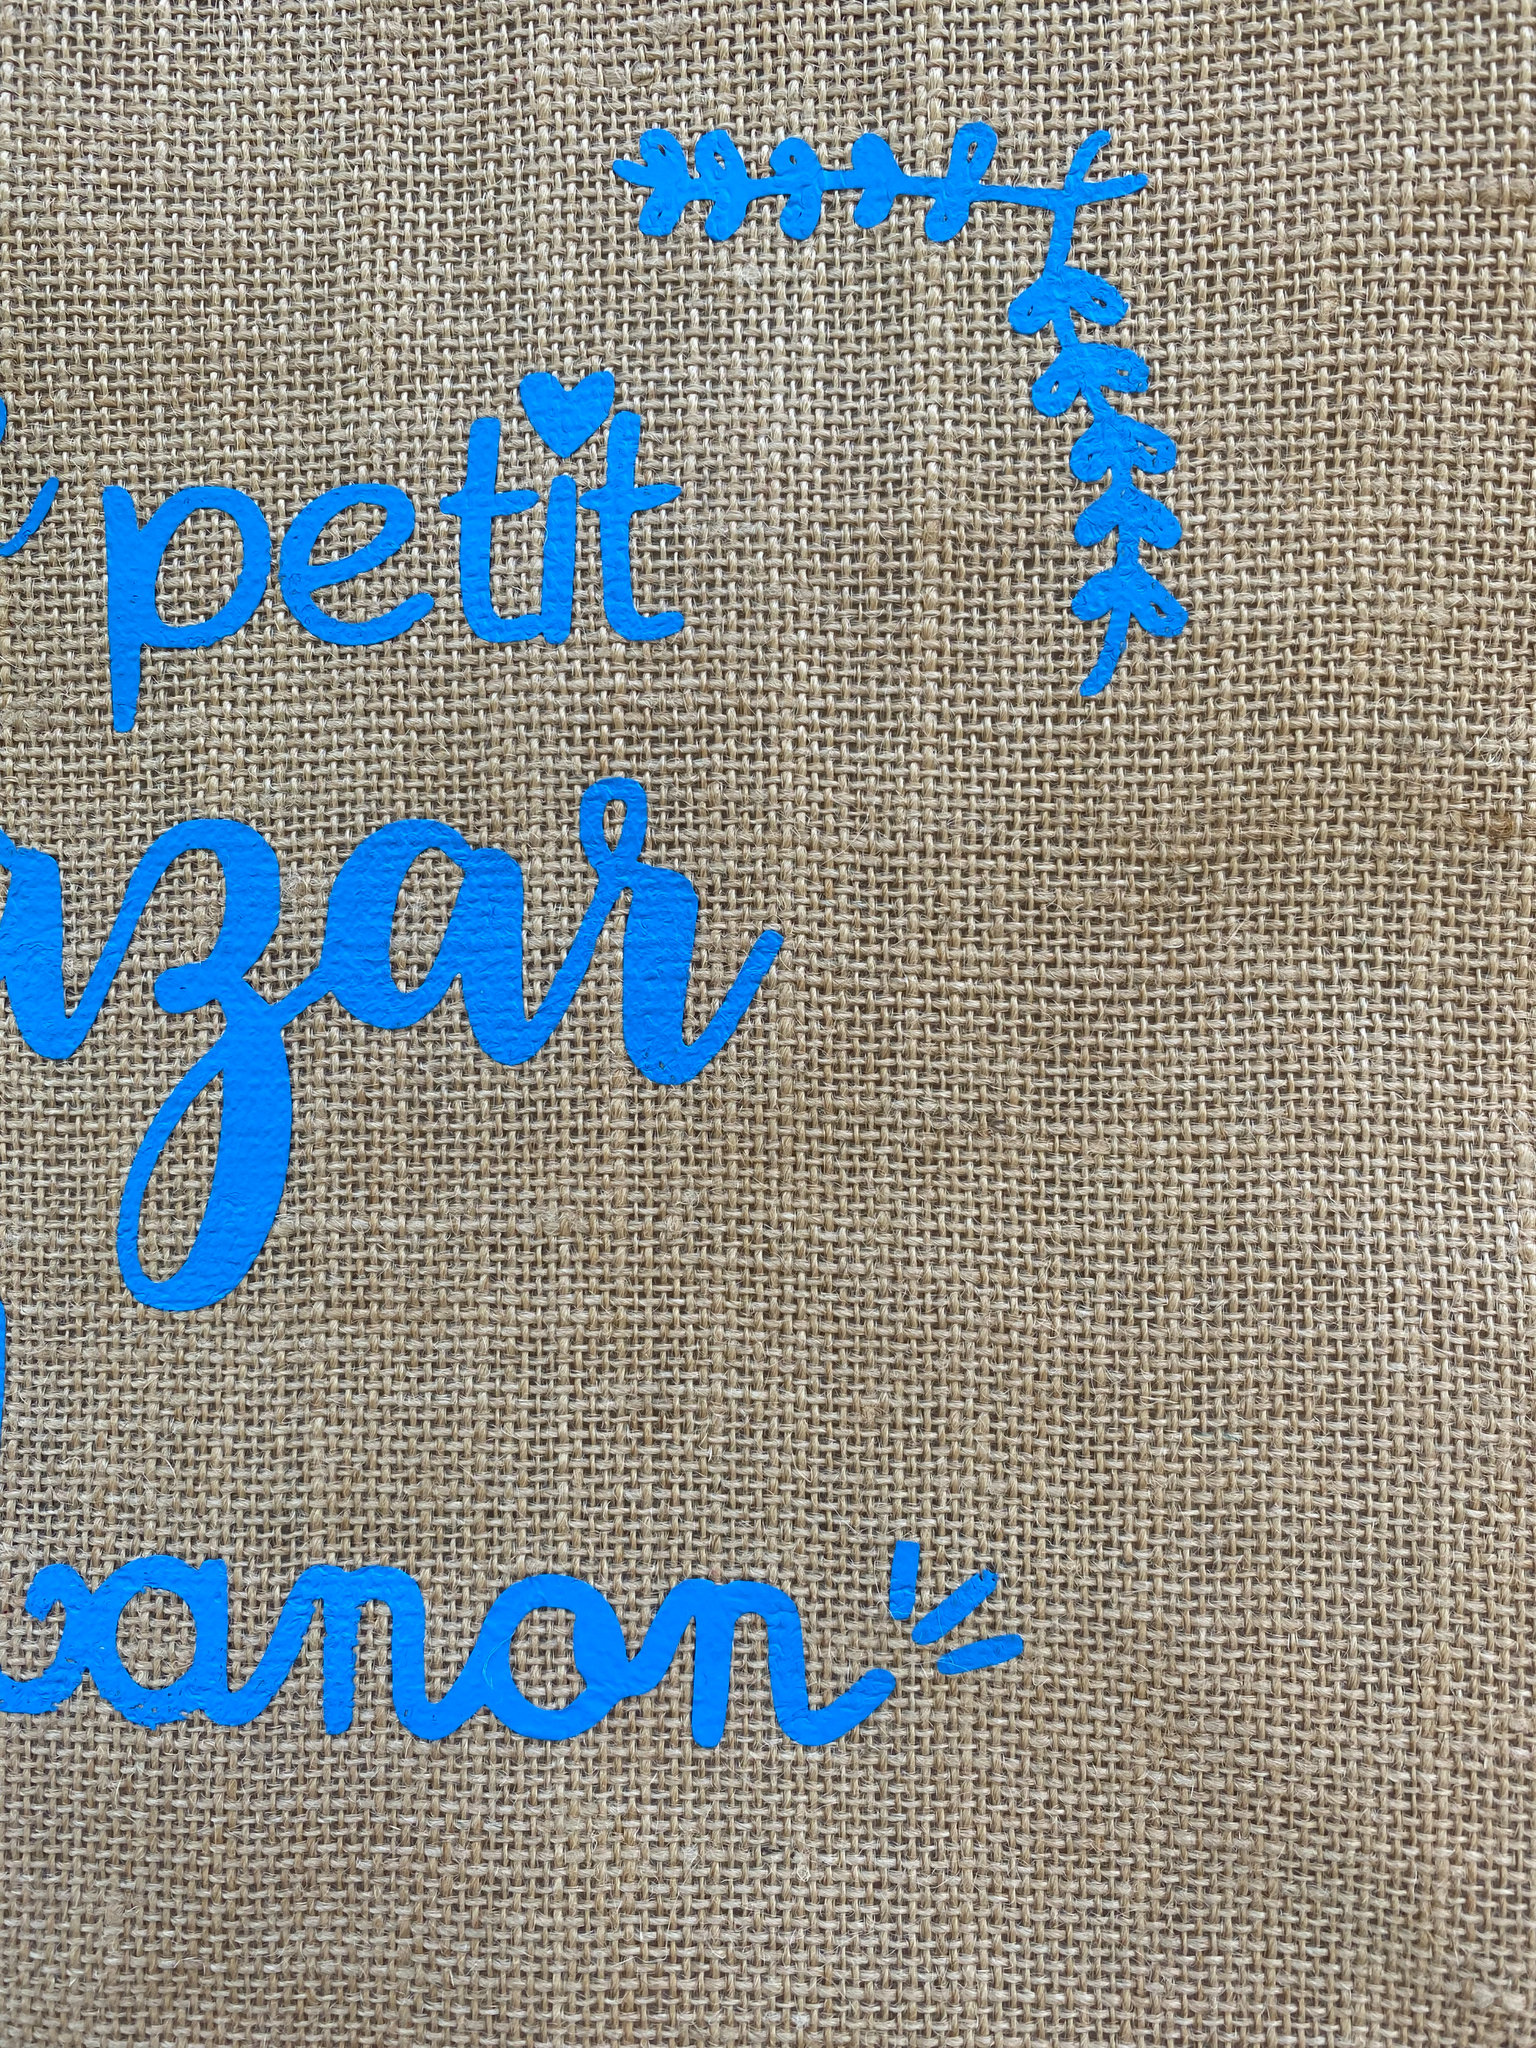 petit
zar
anon